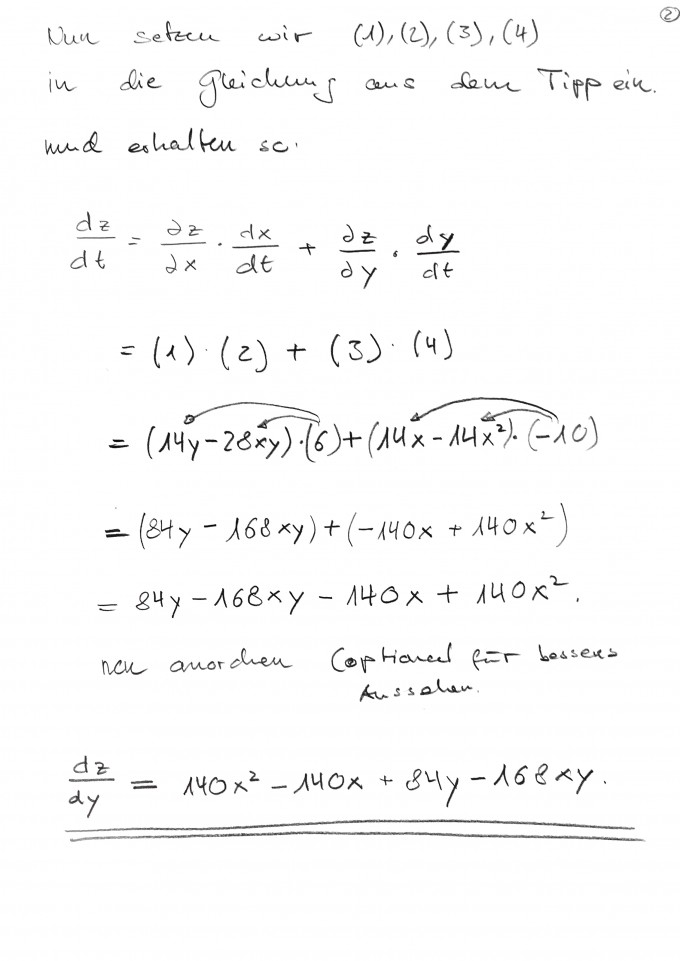 ②
Nun setzen wir (1), (2), (3), (4)
in die Gleichung aus dem Tipp ein.
und erhalten so:
dz/dt = ∂z/∂x · dx/dt + ∂z/∂y · dy/dt
= (1) · (2) + (3) · (4)
= (14y - 28xy) · (6) + (14x - 14x²) · (-10)
= (84y - 168xy) + (-140x + 140x²)
= 84y - 168xy - 140x + 140x².
neu anordnen (optional für besseres
Aussehen.
dz/dy = 140x² - 140x + 84y - 168xy.